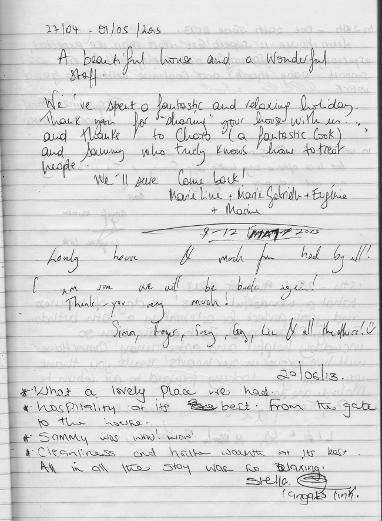 27/04 - 01/05/2013
A beautiful house and a Wonderful
Staff
We've spent a fantastic and relaxing holiday.
Thank you for "sharing" your house with us
and thanks to (a fantastic Cook)
and Sammy who truly knows how to treat
people.
We'll sure come back!
Marie Line + Marie Gabrielle + Eugénie
+ Marine
9-12 MAY 2013
Lovely house & much fun had by all!
I am sure we will be back again!
Thank-you very much!
Simon, & all the others!
20/06/13.
* What a lovely place we had.
* hospitality at its best. From the gate
to the house.
* Sammy was wow! wow!
* Cleanliness and at its best.
All in all the stay was so relaxing.
Stella